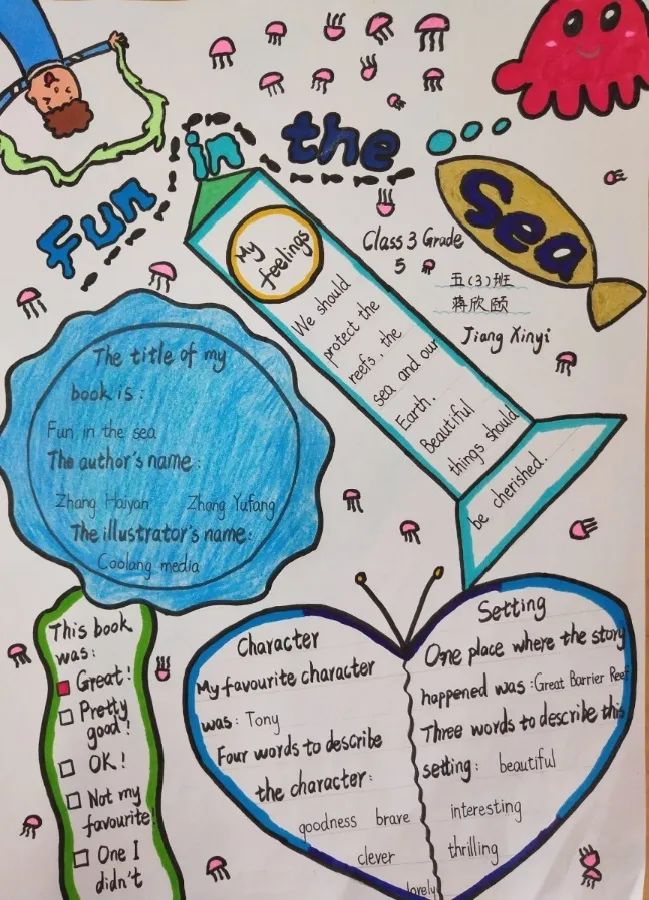 Fun in the Sea
My
feelings
We should
protect the
reefs, the
sea and our
Earth.
Beautiful
things should
be cherished.
Class 3 Grade
5
五(3)班
蒋欣颐
Jiang Xinyi
The title of my
book is:
Fun in the sea
The author's name:
Zhang Haiyan Zhang Yufang
The illustrator's name:
Coolang media
This book
was:
Great!
Pretty
good!
OK!
Not my
favourite
One I
didn't
Character
My favourite character
was: Tony
Four words to describe
the character:
goodness brave
clever
lovely
Setting
One place where the story
happened was: Great Barrier Reef
Three words to describe this
setting: beautiful
interesting
thrilling